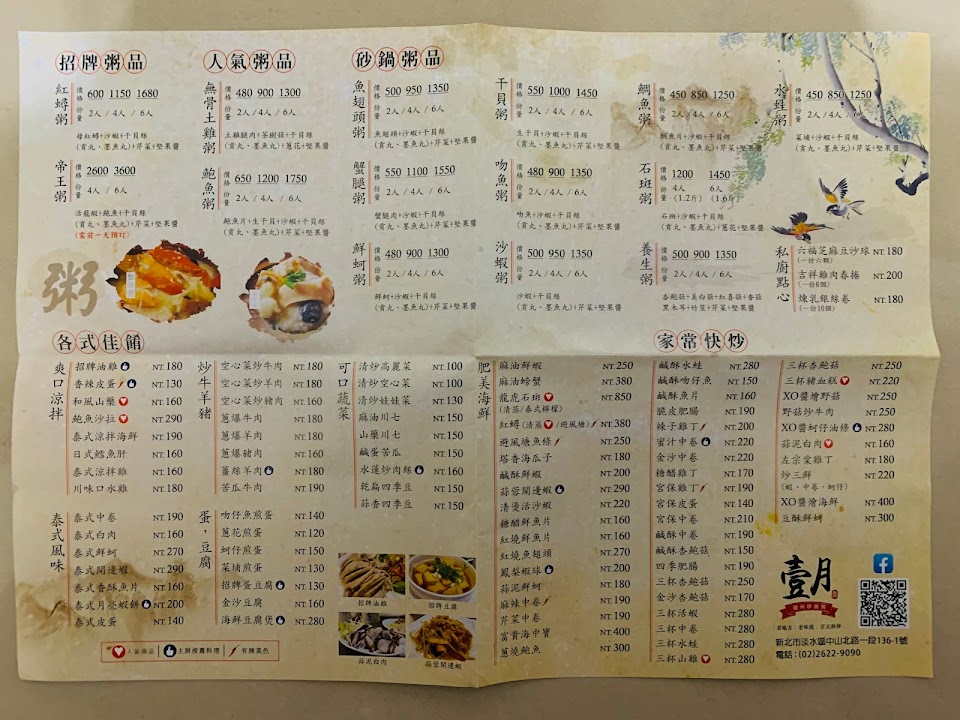 招牌粥品
紅蟳粥
價格 600 1150 1680
份量 2人/4人/6人
母紅蟳+沙蝦+干貝絲
(貢丸、墨魚丸)+芹菜+堅果醬
帝王粥
價格 2600 3600
份量 4人/6人
活龍蝦+鮑魚+干貝絲
(貢丸、墨魚丸)+芹菜+堅果醬
(需前一天預訂)
粥
人氣粥品
無骨土雞粥
價格 480 900 1300
份量 2人/4人/6人
土雞腿肉+茶樹菇+干貝絲
(貢丸、墨魚丸)+蔥花+堅果醬
鮑魚粥
價格 650 1200 1750
份量 2人/4人/6人
鮑魚片+生干貝+干貝絲
(貢丸、墨魚丸)+芹菜+堅果醬
砂鍋粥品
魚翅頭粥
價格 500 950 1350
份量 2人/4人/6人
魚翅頭+沙蝦+干貝絲
(貢丸、墨魚丸)+芹菜+堅果醬
蟹腿粥
價格 550 1100 1550
份量 2人/4人/6人
蟹腿肉+沙蝦+干貝絲
(貢丸、墨魚丸)+芹菜+堅果醬
鮮蚵粥
價格 480 900 1300
份量 2人/4人/6人
鮮蚵+沙蝦+干貝絲
(貢丸、墨魚丸)+芹菜+堅果醬
干貝粥
價格 550 1000 1450
份量 2人/4人/6人
生干貝+沙蝦+干貝絲
(貢丸、墨魚丸)+芹菜+堅果醬
吻魚粥
價格 480 900 1350
份量 2人/4人/6人
吻魚+沙蝦+干貝絲
(貢丸、墨魚丸)+芹菜+堅果醬
沙蝦粥
價格 500 950 1350
份量 2人/4人/6人
沙蝦+干貝絲
(貢丸、墨魚丸)+芹菜+堅果醬
鯛魚粥
價格 450 850 1250
份量 2人/4人/6人
鯛魚片+沙蝦+干貝絲
(貢丸、墨魚丸)+芹菜+堅果醬
石斑粥
價格 1200 1450
份量 4人 6人
(1.2斤) (1.6斤)
石斑+沙蝦+干貝絲
(貢丸、墨魚丸)+蔥花+堅果醬
養生粥
價格 500 900 1350
份量 2人/4人/6人
杏鮑菇+美白菇+紅喜菇+香菇
黑木耳+竹笙+芹菜+堅果醬
水蛙粥
價格 450 850 1250
份量 2人/4人/6人
菜埔+沙蝦+干貝絲
(貢丸、墨魚丸)+芹菜+堅果醬
私廚點心
六福芝麻豆沙球 NT.180
(一份六顆)
吉祥雞肉春捲 NT.200
(一份6個)
煉乳銀絲卷 NT.180
(一份16個)
各式佳餚
爽口涼拌
招牌油雞 NT.180
香辣皮蛋 NT.130
和風山藥 NT.160
鮑魚沙拉 NT.290
泰式涼拌海鮮 NT.190
日式鱈魚肝 NT.160
泰式涼拌雞 NT.160
川味口水雞 NT.180
泰式風味
泰式中卷 NT.190
泰式白肉 NT.160
泰式鮮蚵 NT.270
泰式開邊蝦 NT.290
泰式香酥魚片 NT.160
泰式月亮蝦餅 NT.200
泰式皮蛋 NT.140
炒牛羊豬
空心菜炒牛肉 NT.180
空心菜炒羊肉 NT.180
空心菜炒豬肉 NT.160
蔥爆牛肉 NT.180
蔥爆羊肉 NT.180
蔥爆豬肉 NT.160
薑絲羊肉 NT.180
苦瓜牛肉 NT.190
蛋，豆腐
吻仔魚煎蛋 NT.140
蔥花煎蛋 NT.120
蚵仔煎蛋 NT.150
菜埔煎蛋 NT.130
招牌蛋豆腐 NT.130
金沙豆腐 NT.160
海鮮豆腐煲 NT.280
可口蔬菜
清炒高麗菜 NT.100
清炒空心菜 NT.100
清炒娃娃菜 NT.130
麻油川七 NT.150
山藥川七 NT.150
鹹蛋苦瓜 NT.150
水蓮炒肉絲 NT.160
乾扁四季豆 NT.150
蒜香四季豆 NT.150
招牌油雞
招牌豆腐
蒜泥白肉
蒜蓉開邊蝦
肥美海鮮
麻油鮮蝦 NT.250
麻油螃蟹 NT.380
龍虎石斑 NT.850
(清蒸/泰式檸檬)
紅蟳(清蒸/避風塘) NT.380
避風塘魚條 NT.250
塔香海瓜子 NT.180
鹹酥鮮蝦 NT.200
蒜蓉開邊蝦 NT.290
清燙活沙蝦 NT.220
糖醋鮮魚片 NT.160
紅燒鮮魚片 NT.160
紅燒魚翅頭 NT.270
鳳梨蝦球 NT.200
蒜泥鮮蚵 NT.180
麻辣中卷 NT.190
芹菜中卷 NT.190
富貴海中寶 NT.400
蔥燒鮑魚 NT.300
家常快炒
鹹酥水蛙 NT.280
鹹酥吻仔魚 NT.150
鹹酥魚片 NT.160
脆皮肥腸 NT.190
辣子雞丁 NT.190
蜜汁中卷 NT.200
金沙中卷 NT.220
糖醋雞丁 NT.170
宮保雞丁 NT.190
宮保皮蛋 NT.140
宮保中卷 NT.210
鹹酥中卷 NT.190
鹹酥杏鮑菇 NT.150
四季肥腸 NT.190
三杯杏鮑菇 NT.250
金沙杏鮑菇 NT.170
三杯活蝦 NT.280
三杯中卷 NT.280
三杯水蛙 NT.280
三杯山雞 NT.280
三杯杏鮑菇 NT.250
三杯豬血糕 NT.220
XO醬燴野菇 NT.250
野菇炒牛肉 NT.250
XO醬蚵仔油條 NT.280
蒜泥白肉 NT.160
左宗棠雞丁 NT.180
炒三鮮 NT.220
(蝦、中卷、蚵仔)
XO醬燴海鮮 NT.400
豆酥鮮蚵 NT.300
壹月
潮州砂鍋粥
新北市淡水區中山北路一段136-1號
電話：(02)2622-9090
人氣商品
主廚推薦料理
有辣菜色